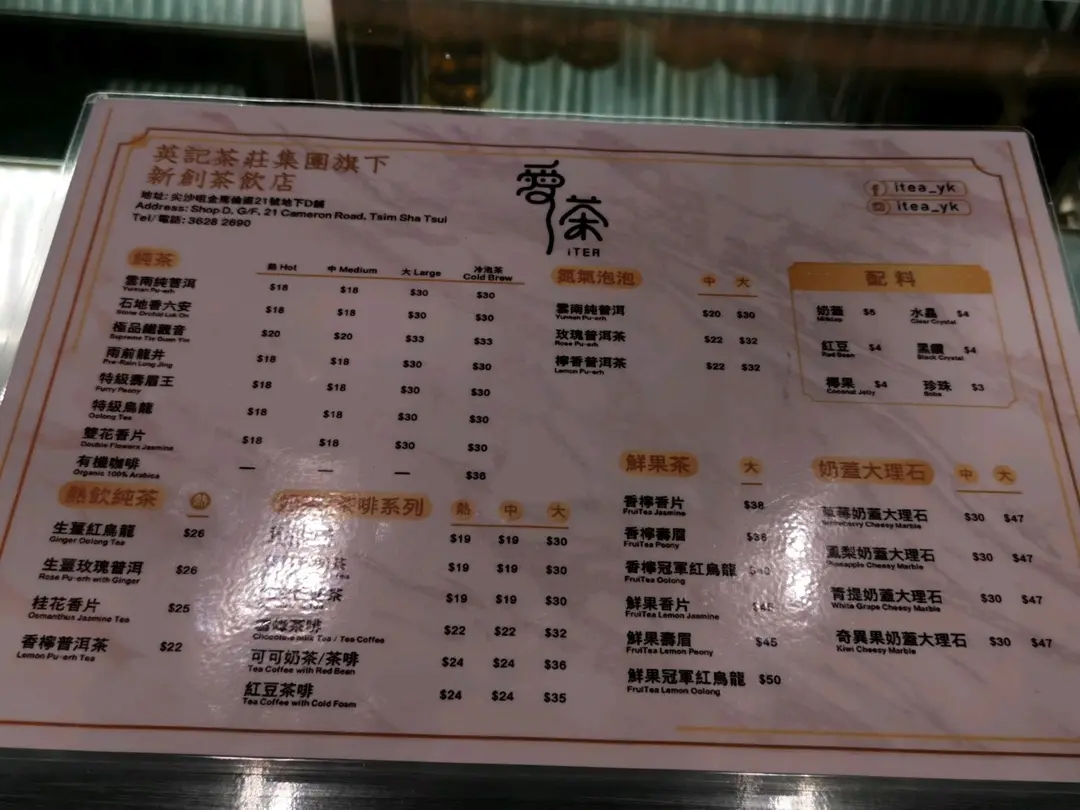 英記茶莊集團旗下
新創茶飲店
地址: 尖沙咀金馬倫道21號地下D舖
Address: Shop D, G/F, 21 Cameron Road, Tsim Sha Tsui
Tel/電話: 3628 2690
愛茶
iTEA
itea_yk
itea_yk
純茶
熱 Hot 中 Medium 大 Large 冷泡茶 Cold Brew
雲南純普洱 $18 $18 $30 $30
Yunnan Pu-erh
石地香六安 $18 $18 $30 $30
Stone Orchid Luk On
極品鐵觀音 $20 $20 $33 $33
Supreme Tie Guan Yin
雨前龍井 $18 $18 $30 $30
Pre-Rain Long Jing
特級壽眉王 $18 $18 $30 $30
Furry Peony
特級烏龍 $18 $18 $30 $30
Oolong Tea
雙花香片 $18 $18 $30 $30
Double Flowers Jasmine
有機咖啡 — — — $36
Organic 100% Arabica
氮氣泡泡 中 大
雲南純普洱 $20 $30
Yunnan Pu-erh
玫瑰普洱茶 $22 $32
Rose Pu-erh
檸香普洱茶 $22 $32
Lemon Pu-erh
配料
奶蓋 $5 水晶 $4
Milkcap Clear Crystal
紅豆 $4 黑鑽 $4
Red Bean Black Crystal
椰果 $4 珍珠 $3
Coconut Jelly Boba
熱飲純茶 熱
生薑紅烏龍 $26
Ginger Oolong Tea
生薑玫瑰普洱 $26
Rose Pu-erh with Ginger
桂花香片 $25
Osmanthus Jasmine Tea
香檸普洱茶 $22
Lemon Pu-erh Tea
茶啡系列 熱 中 大
$19 $19 $30
茶 $19 $19 $30
茶 $19 $19 $30
茶啡 $22 $22 $32
Chocolate Milk Tea / Tea Coffee
可可奶茶/茶啡 $24 $24 $36
Tea Coffee with Red Bean
紅豆茶啡 $24 $24 $35
Tea Coffee with Cold Foam
鮮果茶 大
香檸香片 $38
FruiTea Jasmine
香檸壽眉 $38
FruiTea Peony
香檸冠軍紅烏龍
FruiTea Oolong
鮮果香片 $45
FruiTea Lemon Jasmine
鮮果壽眉 $45
FruiTea Lemon Peony
鮮果冠軍紅烏龍 $50
FruiTea Lemon Oolong
奶蓋大理石 中 大
草莓奶蓋大理石 $30 $47
Strawberry Cheesy Marble
鳳梨奶蓋大理石 $30 $47
Pineapple Cheesy Marble
青提奶蓋大理石 $30 $47
White Grape Cheesy Marble
奇異果奶蓋大理石 $30 $47
Kiwi Cheesy Marble